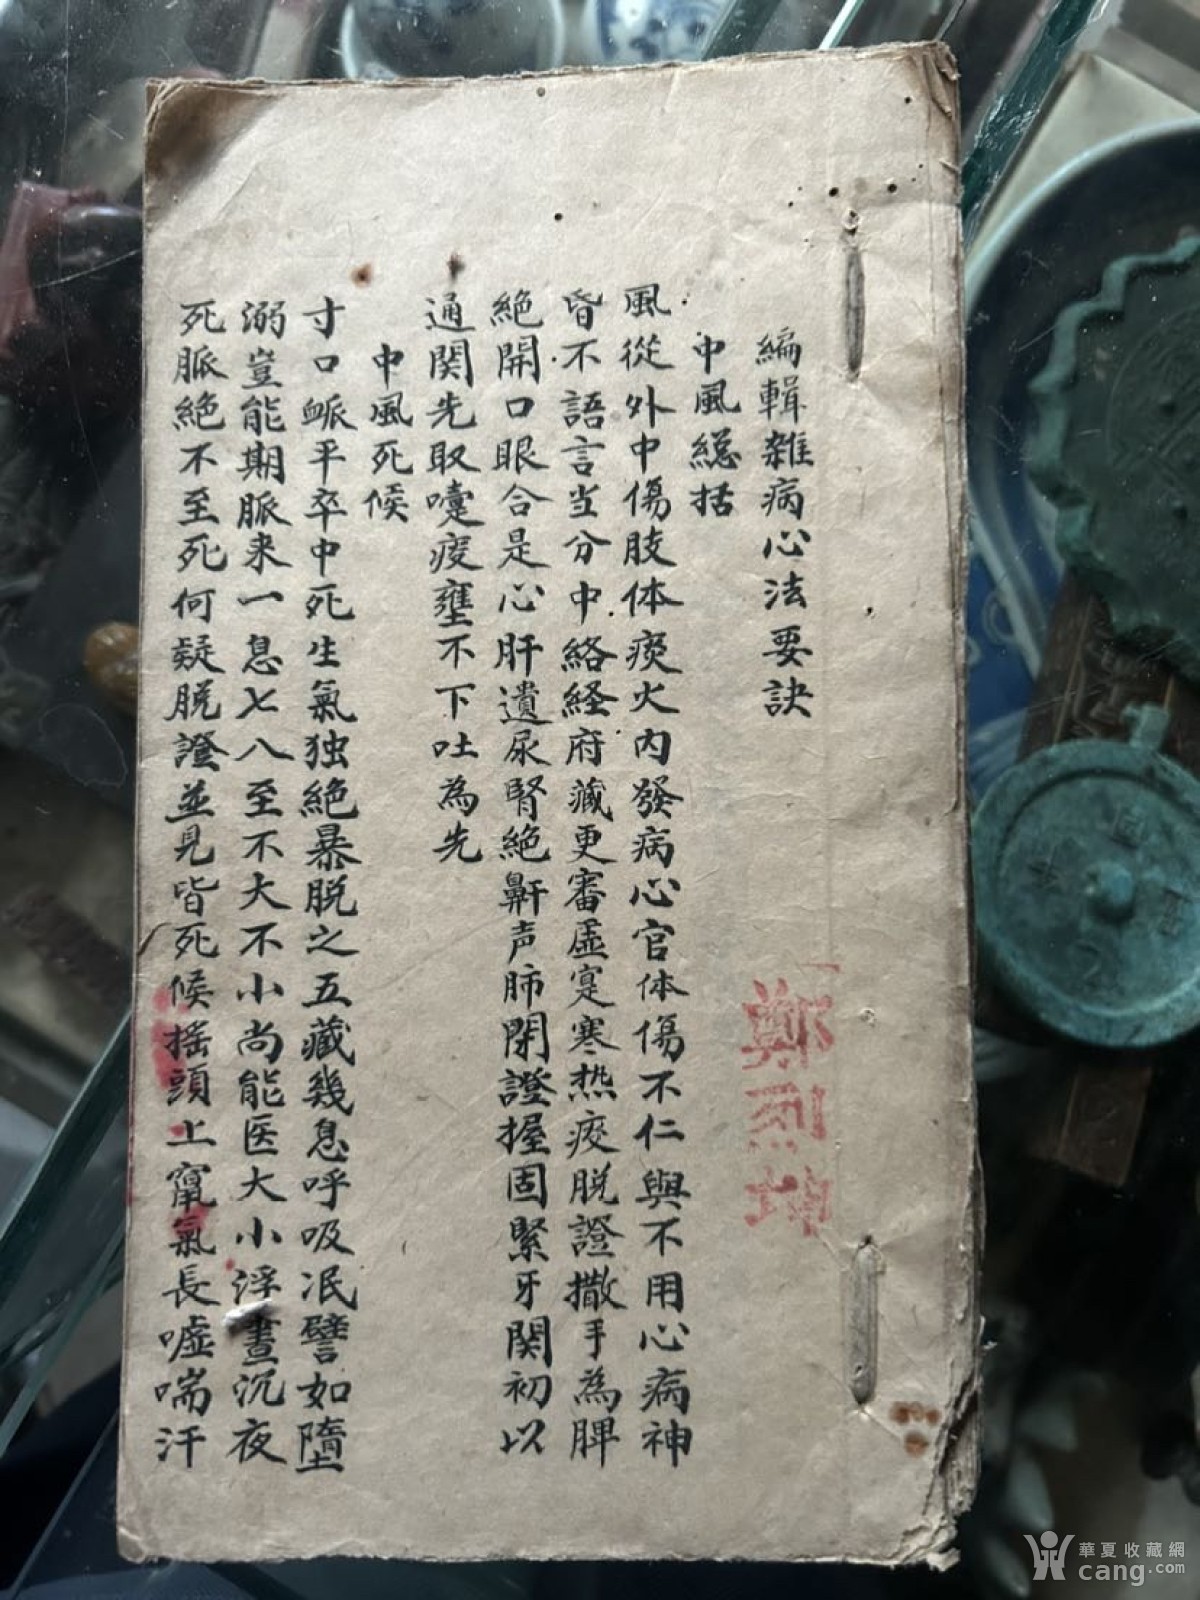 編輯雜病心法要訣
中風緫括
風從外中傷肢体痰火內發病心官体傷不仁與不用心病神
昏不語言当分中絡経府藏更審虛寔寒热痰脱證撒手為脾
絶開口眼合是心肝遺尿腎絶鼾声肺閉證握固緊牙関初以
通関先取嚏痰壅不下吐為先
中風死候
寸口脈平卒中死生氣独絶暴脱之五藏幾息呼吸泯譬如墮
溺豈能期脈来一息七八至不大不小尚能医大小浮晝沉夜
死脈絶不至死何疑脱證並見皆死候摇頭上竄氣長嘘喘汗
鄭烈坤
華夏收藏網
cang.com